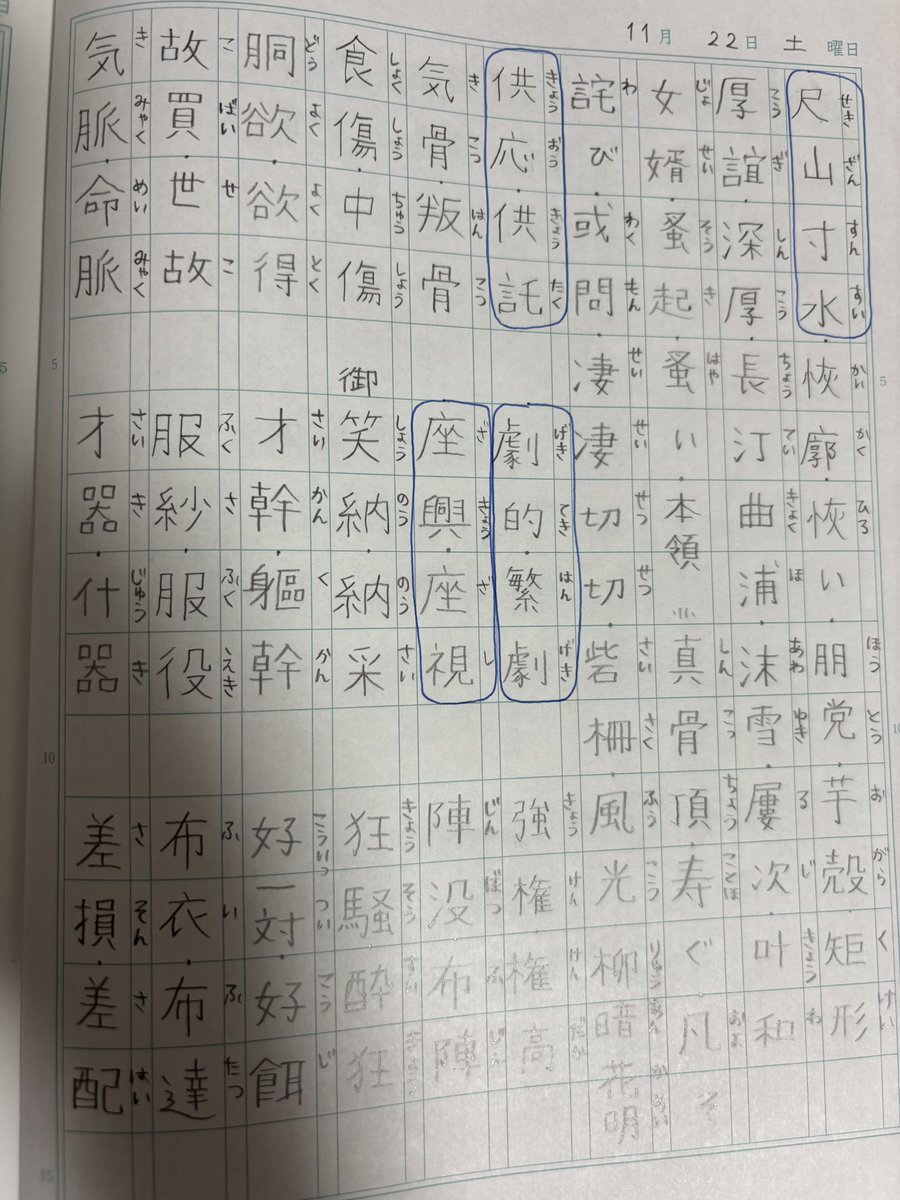 11月 22日 土 曜日
尺山寸水恢廓恢い朋党芋殻矩形
せきざんすんすいかいかくひろほうとうおがらくけい
厚誼・深厚長汀曲浦・沫雪・屡次叶和
こうぎしんこうちょうていきょくほあわゆきるじきょうわ
女婿・蚤起・蚤い本領真骨頂・寿ぐ凡そ
じょせいそうきはやしんこっちょうことほおよ
詫び・或問・凄凄切切・砦柵・風光柳暗花明
わわくもんせいせいせつせつさいさくふうこうりゅうあんかめい
供応・供託 劇的・繁劇 強権・権高
きょうおうきょうたく げきてきはんげき きょうけんけんだか
気骨・叛骨 座興・座視 陣没・布陣
きこつはんこつ ざきょうざし じんぼつふじん
食傷・中傷 御笑納・納采 狂騒・酔狂
しょくしょうちゅうしょう しょうのうのうさい きょうそうすいきょう
胴欲・欲得 才幹・軀幹 好一対・好餌
どうよくよくとく さいかんくかん こういっついこうじ
故買・世故 服紗・服役 布衣・布達
こばいせこ ふくさふくえき ふいふたつ
気脈・命脈 才器・什器 差損・差配
きみゃくめいみゃく さいきじゅうき さそんさはい
5
10
15
5
10